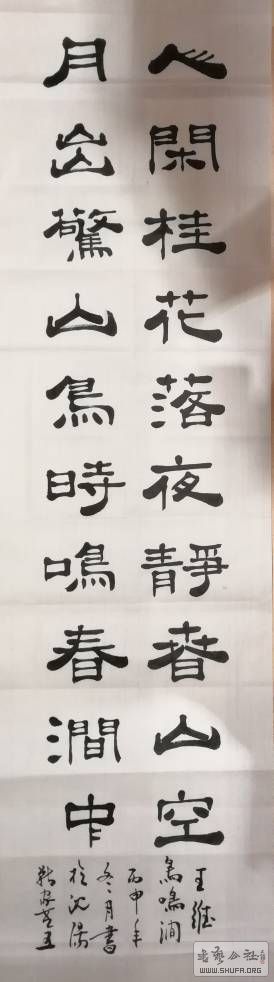 人閑桂花落夜靜春山空
月出驚山鳥時鳴春澗中
王維
鳥鳴澗
丙申年
冬月書
於沈陽
书艺公社
WWW.SHUFA.ORG